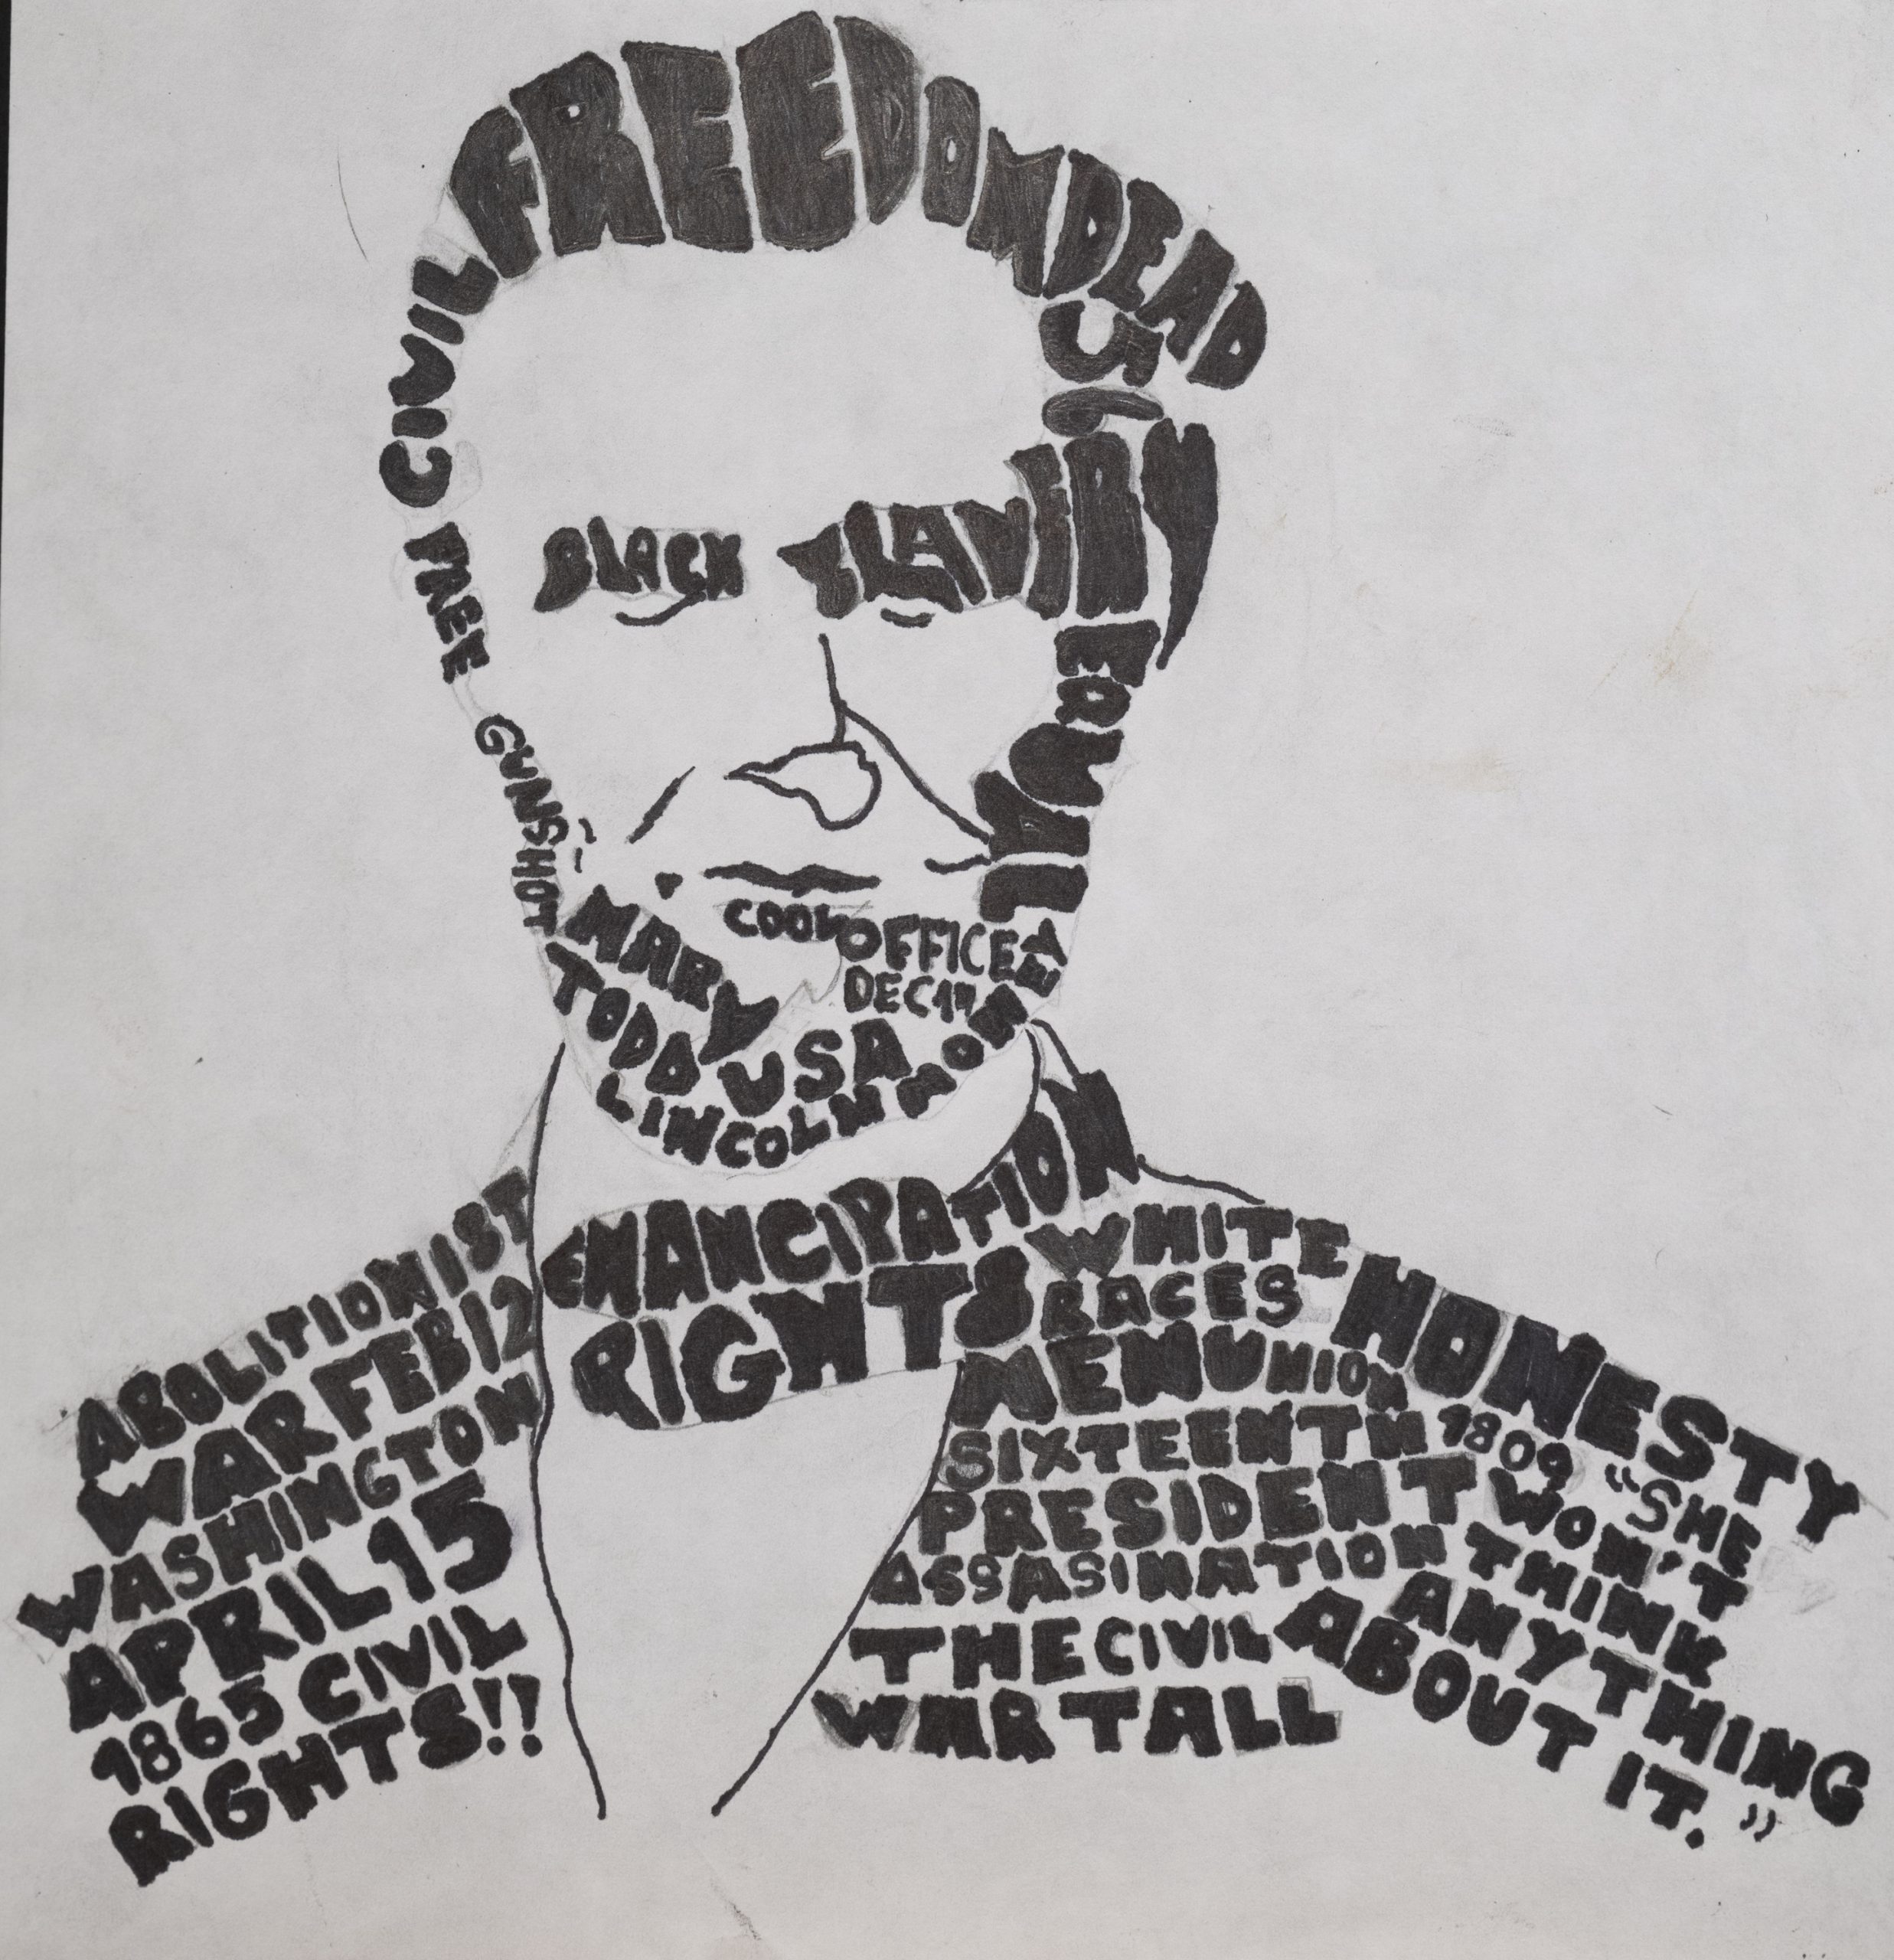 FREEDOM
DEAD
56
CIVIL
FREE
BLACK
SLAVERY
EQUAL
GUNSHOT
COOL
OFFICE
DEC 17
MARY
TODD
USA
LINCOLN
EMANCIPATION
RIGHTS
ABOLITIONIST
WAR FEB 12
WASHINGTON
APRIL 15
1865 CIVIL
RIGHTS!!
WHITE
RACES
MEN UNION
SIXTEENTH 1809
PRESIDENT
ASSASINATION
THE CIVIL
WAR TALL
HONESTY
"SHE
WON'T
THINK
ANYTHING
ABOUT IT."